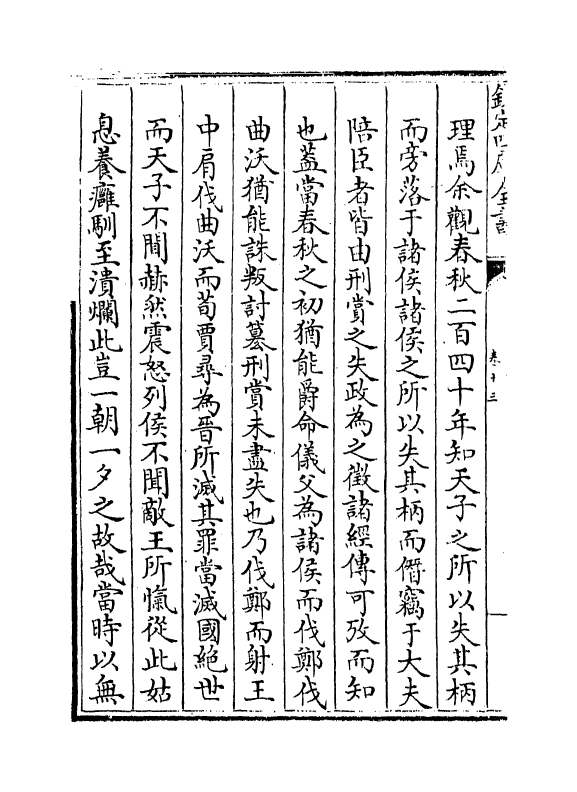 欽定四庫全書
卷十三
理焉余觀春秋二百四十年知天子之所以失其柄
而旁落于諸侯諸侯之所以失其柄而僭竊于大夫
陪臣者皆由刑賞之失政為之徵諸經傳可攷而知
也葢當春秋之初猶能爵命儀父為諸侯而伐鄭伐
曲沃猶能誅叛討簒刑賞未盡失也乃伐鄭而射王
中肩伐曲沃而荀賈尋為晉所滅其罪當滅國絶世
而天子不聞赫然震怒列侯不聞敵王所愾從此姑
息養癰馴至潰爛此豈一朝一夕之故哉當時以無